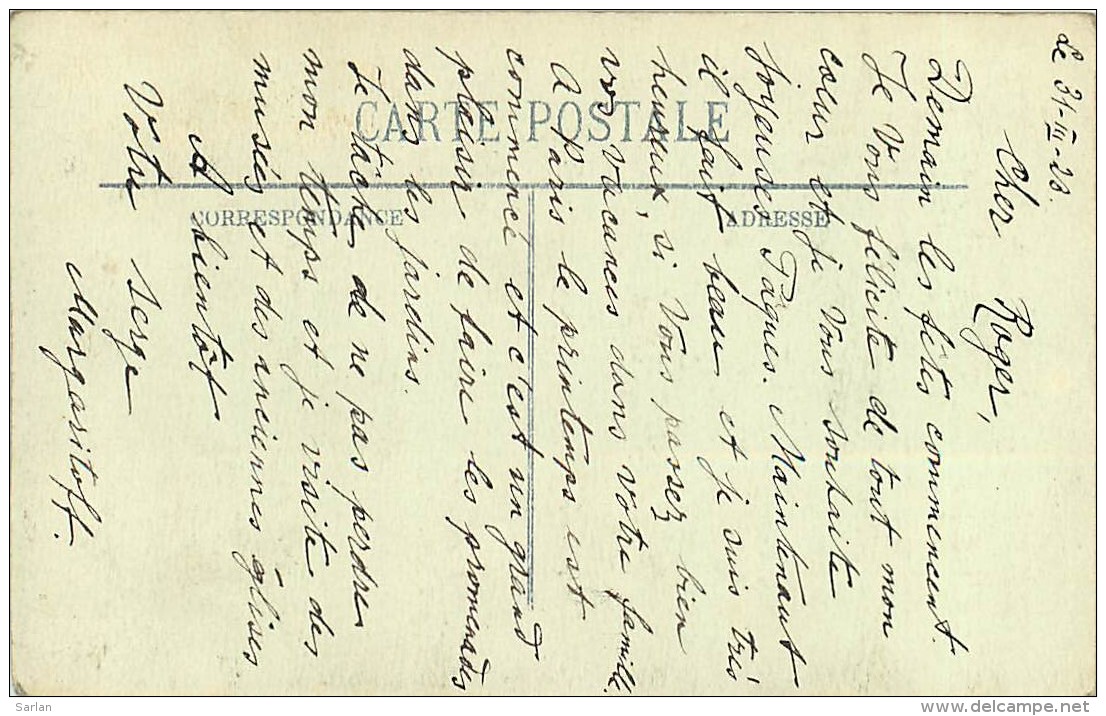 Le 31-III-23.
Cher Roger,
Demain les fêtes commencent.
Je Vous félicite de tout mon
cœur et je Vous souhaite
joyeuses Pâques. Maintenant
il fait beau et je suis très
heureux, si Vous passez bien
vos vacances dans votre famille.
A Paris le printemps est
commencé et c'est un grand
plaisir de faire les promenades
dans les jardins.
Je tâche de ne pas perdre
mon temps et je visite des
musées et des anciennes églises
A bientôt
Votre Serge
Margaritoff.
CARTE POSTALE
CORRESPONDANCE
ADRESSE
Sarlan
www.delcampe.net